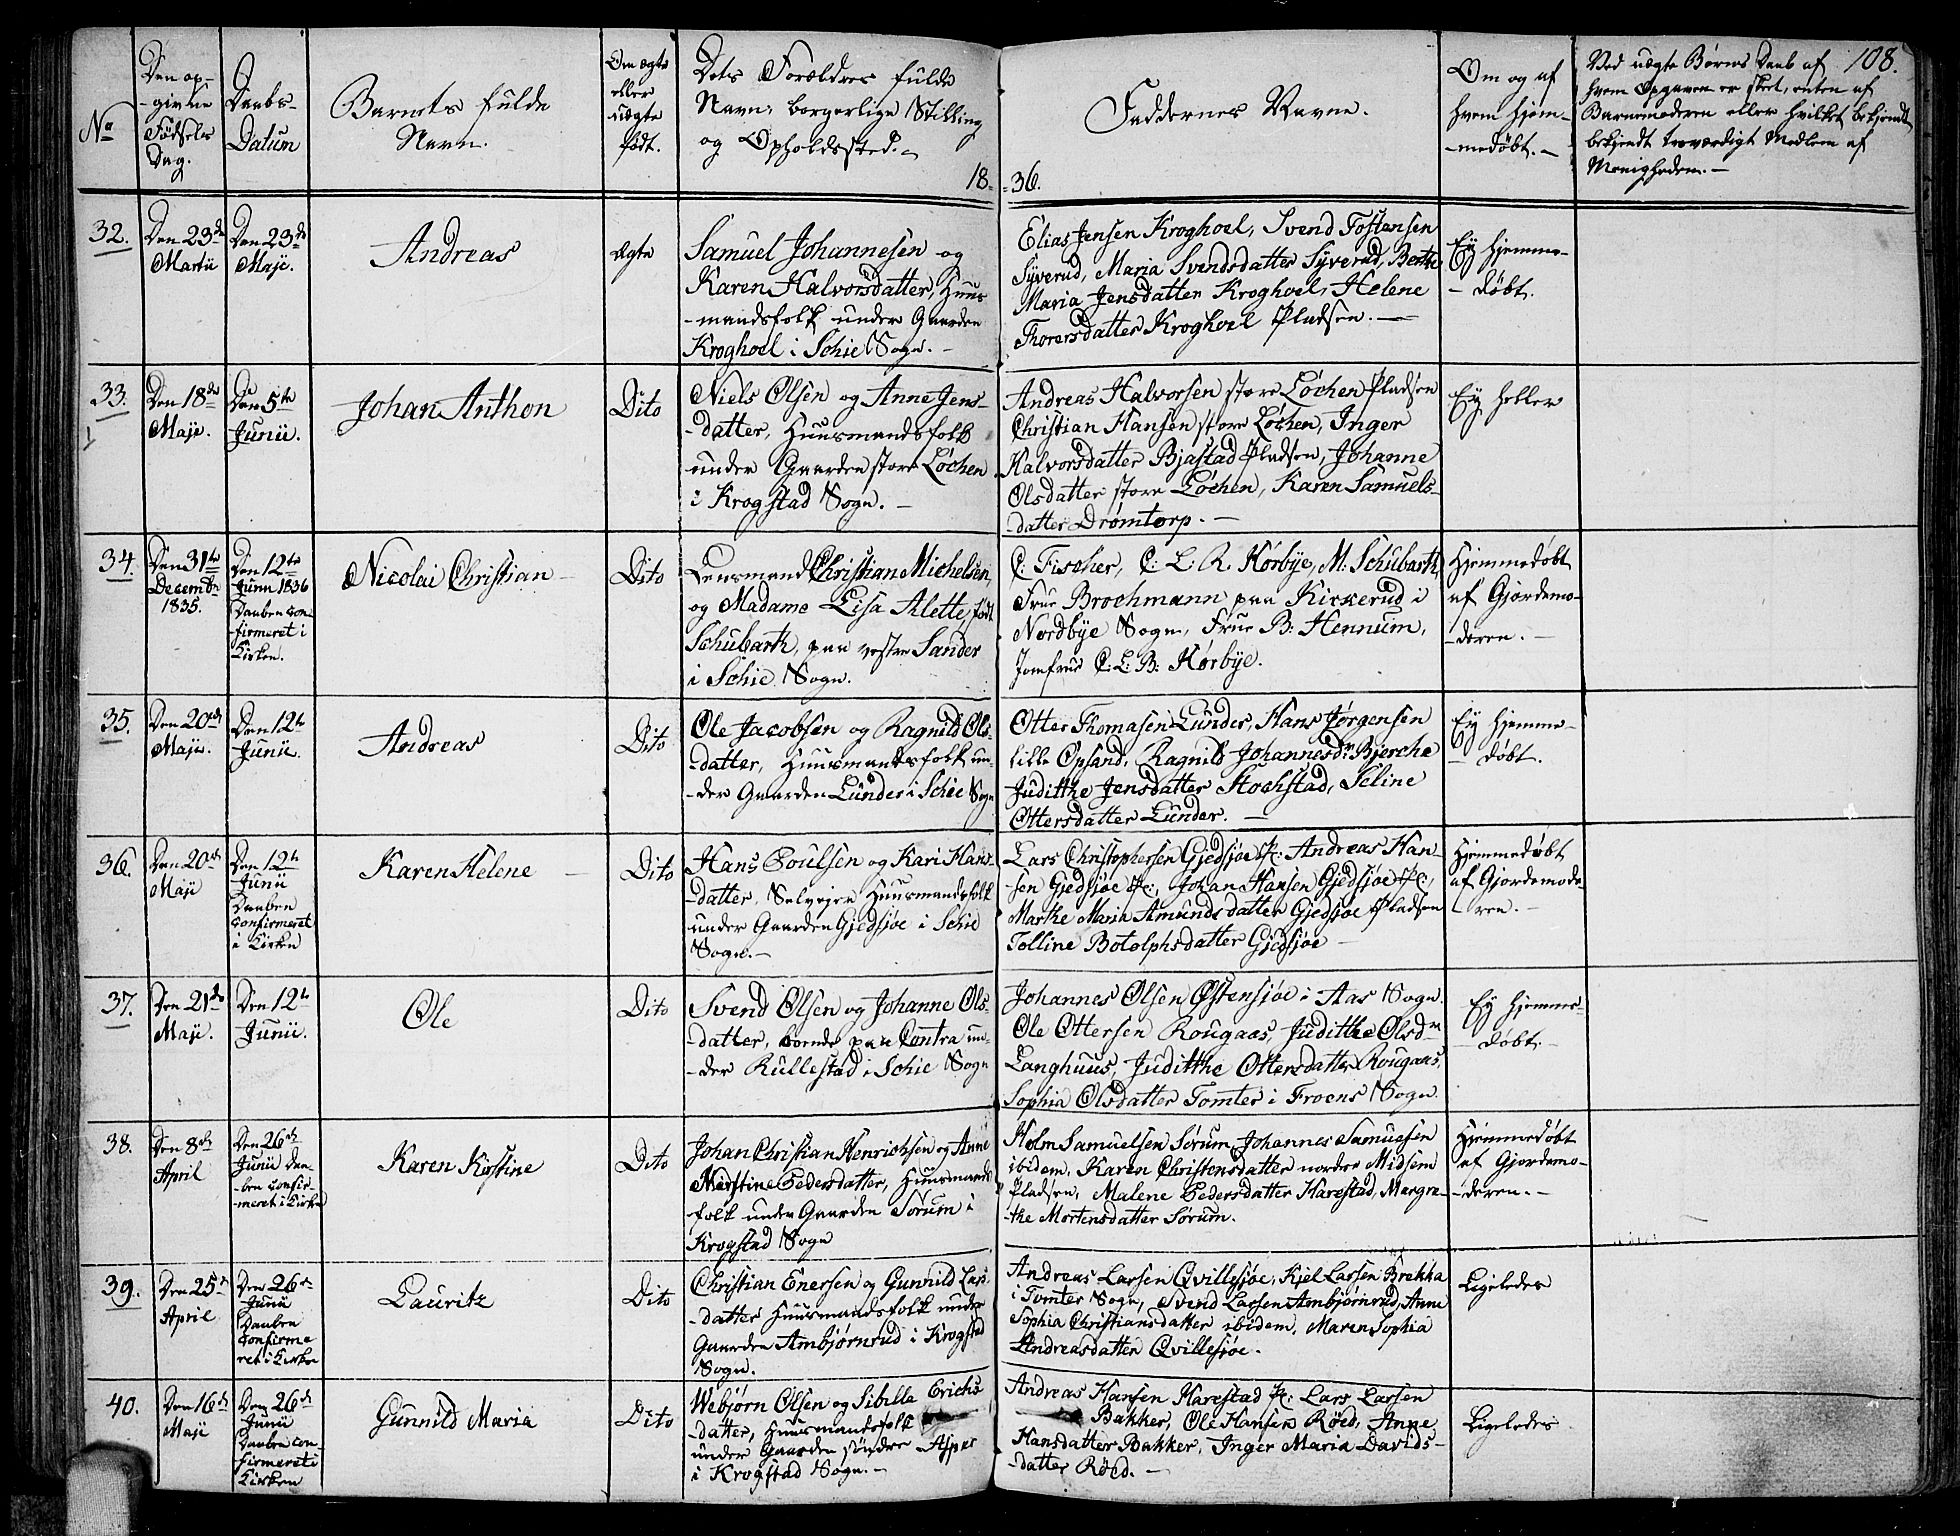 108.
No
Den op-
-givne
Fødsels
Dag.
Daabs-
Datum
Barnets fulde
Navn.
Om ægte
eller
uægte
født.
Dets Forældres fulde
Navn, borgerlige Stilling
og Opholdssted.-
18-
-36.
Faddernes Navne.
Om og af
hvem hjem-
-medøbt.-
Ved uægte Børns Daab af
hvem Opgaven er skeet, enten af
Barnemoderen eller hvilket bekjendt
bekjendt troværdigt Medlem af
Menigheden.-
32.
Den 23de
Martii
Den 23de
Maji.
Andreas
Ægte
Samuel Johannesen og
Karen Halvorsdatter, Huus
-mandsfolk under Gaarden
Kroghoel i Schie Sogn.-
Elias Jensen Kroghoel, Svend Tostensen
Syverud, Maria Svendsdatter Syverud, Berthe
Maria Jensdatter Kroghoel, Helene
Thorersdatter Kroghoel Pladsen.-
Ey hjemme-
-døbt.
33.
Den 18de
Maji.
Den 5te
Junii.
Johan Anthon
Dito
Niels Olsen og Anne Jens-
-datter, Huusmandsfolk
under Gaarden store Løchen
i Krogstad Sogn.-
Andreas Halvorsen store Løchen Pladsen
Christian Hansen store Løchen, Inger
Halvorsdatter Bjastad Pladsen, Johanne
Olsdatter store Løchen, Karen Samuels-
-datter Drømtorp.-
Ey heller
34.
Den 31te
Decembr
1835.
Den 12te
Junii 1836
Daaben con-
-firmeret i
Kirken.
Nicolai Christian
Dito
Lensmand Christian Michelsen,
og Madame Lisa Alette, født
Schubarth, paa vestre Sander
i Schie Sogn.
C: Fischer, C: L: R. Kørbye, M: Schubarth,
Frue Brochmann paa Kirkerud i
Nordbye Sogn, Frue B: Hennum,
Jomfrue C: L: B: Kørbye.
Hjemmedøbt
af Gjordemo-
-deren.-
35.
Den 20de
Maji.
Den 12te
Junii.
Andreas
Dito
Ole Jacobsen og Ragnild Ols-
-datter, Huusmandsfolk un-
-der Gaarden Lunder i Schie Sogn
Otter Thomasen Lunder, Hans Jørgensen
lille Opsand, Ragnild Johannesdr Bjerche
Judithe Jensdatter Stochstad, Seline
Ottersdatter Lunder.-
Ey hjemme-
-døbt.
36.
Den 20de
Maji
Den 12te
Junii
Daaben
confirmeret
i Kirken
Karen Helene
Dito
Hans Poulsen og Kari Hans-
-datter, Selvejer Huusmandsfolk
under Gaarden Gjedsjøe i Schie
Sogn.-
Lars Christophersen Gjedsjøe Pl: Andreas Han-
-sen Gjedsjøe Pl:, Johan Hansen Gjedsjøe Pl:,
Marthe Maria Amundsdatter Gjedsjøe Pladsen
Tolline Botolphsdatter Gjedsjøe
Hjemmedøbt
af Gjordemode-
-ren.-
37.
Den 21de
Maji.
Den 12te
Junii.
Ole
Dito
Svend Olsen og Johanne Ols-
-datter, boende paa Contra un-
-der Rullestad i Schie Sogn
Johannes Olsen Østensjøe i Aas Sogn.
Ole Ottersen Rougaas, Judithe Olsdr
Langhuus, Judithe Ottersdatter Rougaas,
Sophia Olsdatter Tomter i Froens Sogn.
Ey hjemme-
-døbt.-
38.
Den 8de
April
Den 26de
Junii Daa-
-ben confir-
-meret i Kirken
Karen Kirstine
Dito
Johan Christian Henrichsen og Anne
Kirstine Pedersdatter, Huusmands
folk under Gaarden Sørum i
Krogstad Sogn
Holm Samuelsen Sørum, Johannes Samuelsen
ibidem, Karen Christensdatter nordre Midsem
Pladsen, Malene Pedersdatter Harestad, Margre-
-the Mortensdatter Sørum.
Hjemmedøbt
af Gjordemo-
-deren.-
39.
Den 25de
April
Den 26de
Junii
Daaben
confirme
ret i Kirken
Lauritz
Dito
Christian Enersen og Gunnild Lars-
-datter Huusmandsfolk under
Gaarden Ambjørnrud i Krogstad
Sogn.
Andreas Larsen Qvillesjøe, Kjel Larsen Brekka
i Tomter Sogn, Svend Larsen Ambjørnrud, Anne
Sophia Christiansdatter ibidem, Maren Sophia
Andreasdatter Qvillesjøe.
Ligeledes
40.
Den 16de
Maji
Den 26de
Junii
Daaben con-
-firmeret i
Kirken
Gunnild Maria
Dito
Webjørn Olsen og Sibilla Erichs
-datter, Huusmandsfolk
under Gaarden søndre Asper
i Krogstad Sogn.-
Andreas Hansen Harestad Pl: Lars Larsen
Bakker, Ole Hansen Røed, Anne
Hansdatter Bakker, Inger Maria Davids-
-datter Røed.-
Ligeledes